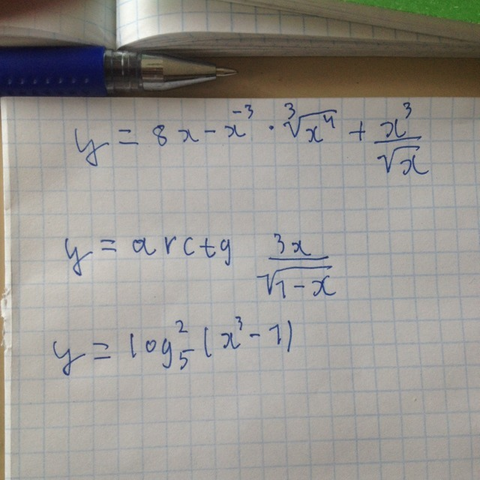 y = 8x - x^{-3} · ∛(x^4) + x^3/√x
y = arctg 3x/√(1-x)
y = log_5^2 (x^3 - 1)